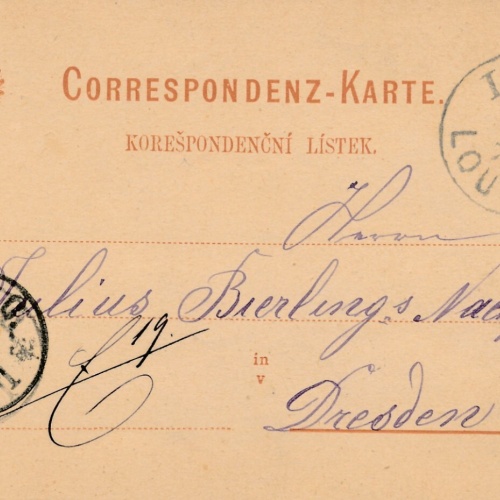 CORRESPONDENZ-KARTE.
KOREŠPONDENČNÍ LÍSTEK.
LOU
Herrn
Julius Bierling's Nach
19.
in
v
Dresden